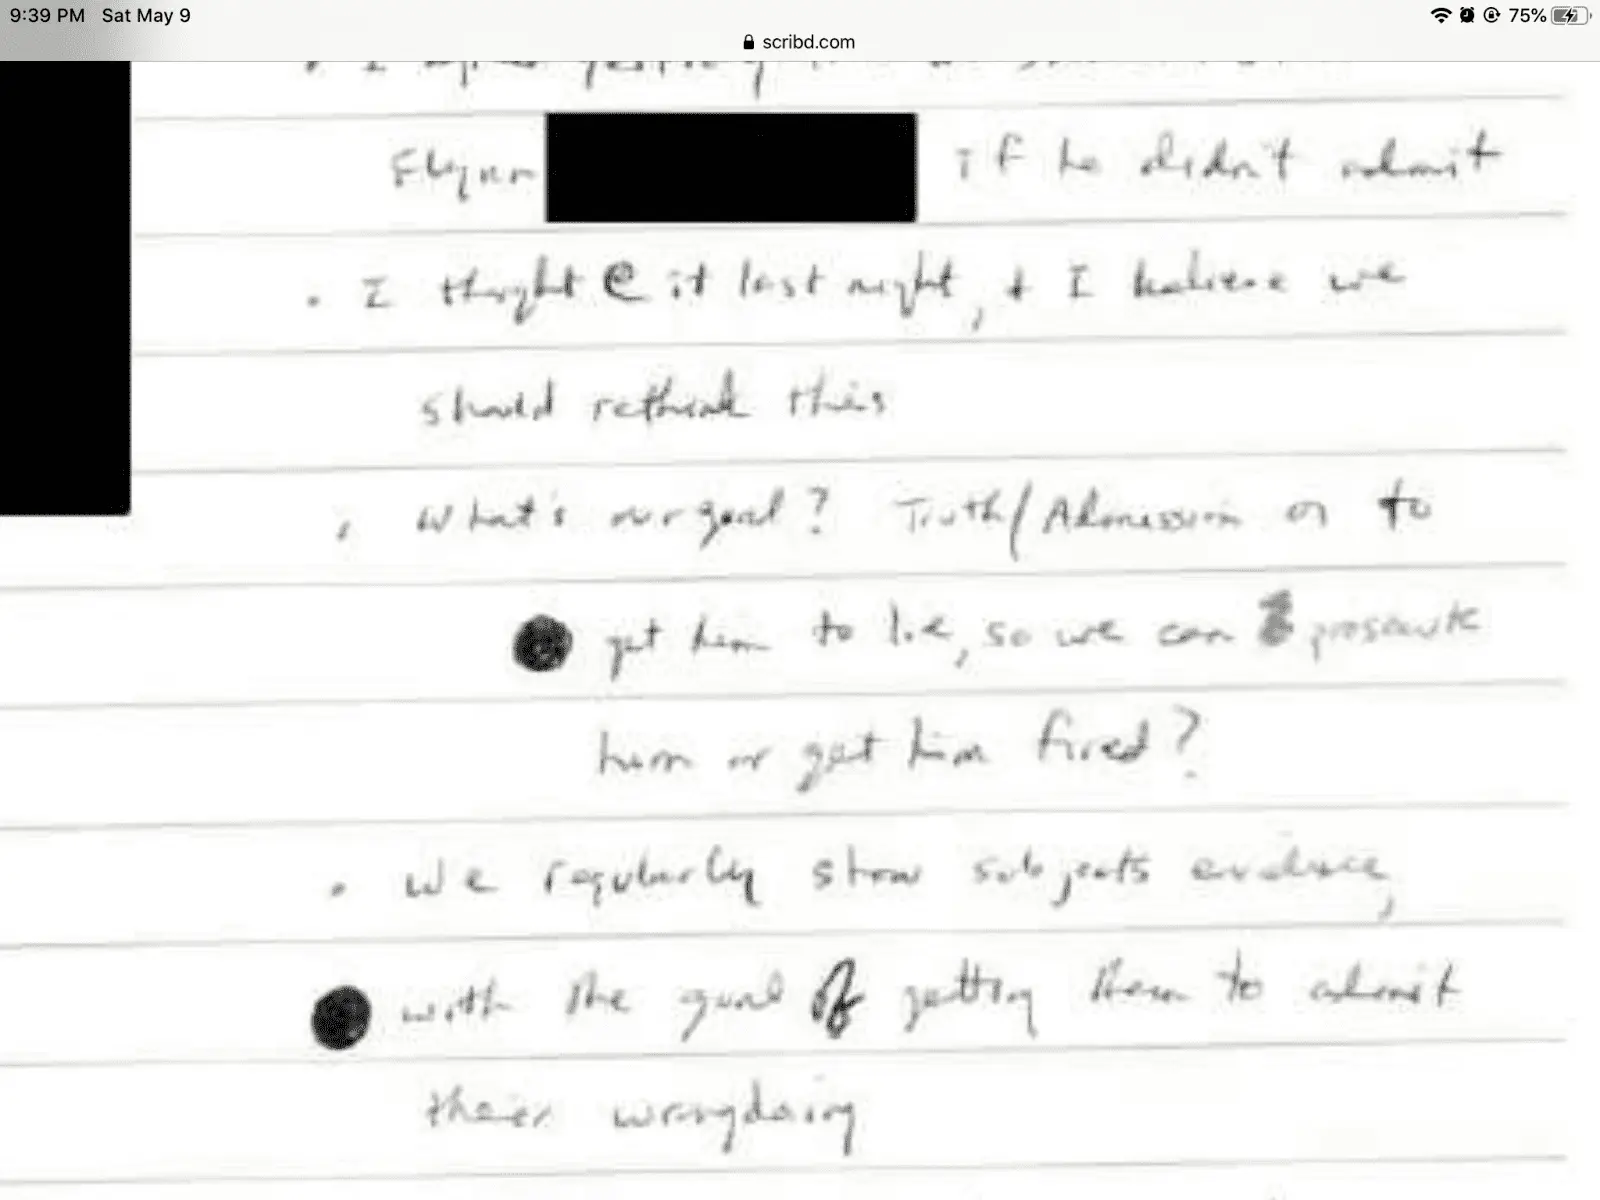 9:39 PM Sat May 9
75%
scribd.com
Flynn if he didn't admit
. I thought @ it last night, + I believe we
should rethink this
. What's our goal? Truth/Admission or to
get him to lie, so we can prosecute
him or get him fired?
. We regularly show subjects evidence,
with the goal of getting them to admit
their wrongdoing